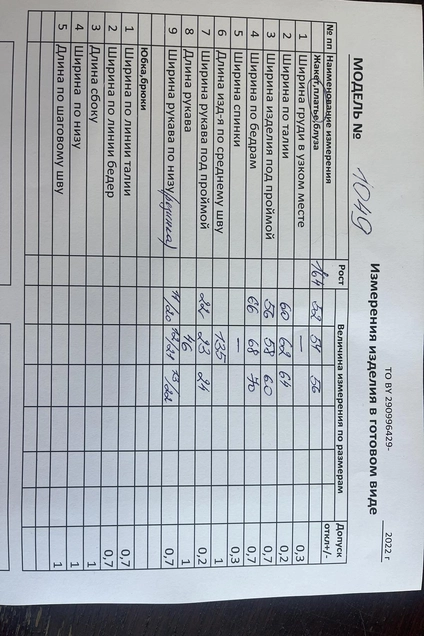 ТО BY 290996429-          2022 г
Измерения изделия в готовом виде
МОДЕЛЬ № 1049
№ пп Наименование измерения Рост Величина измерения по размерам Допуск откл+/-
Жакет,платье,блуза 164 52 54 56
1 Ширина груди в узком месте — 0,3
2 Ширина по талии 60 62 64 0,2
3 Ширина изделия под проймой 56 58 60 0,7
4 Ширина по бедрам 66 68 70 0,7
5 Ширина спинки — 0,3
6 Длина изд-я по среднему шву 135 1
7 Ширина рукава под проймой 22 23 24 0,2
8 Длина рукава 46 1
9 Ширина рукава по низу(резинка) 11/20 12/21 13/22 0,7
Юбка,брюки
1 Ширина по линии талии 0,7
2 Ширина по линии бедер 0,7
3 Длина сбоку 1
4 Ширина по низу 1
5 Длина по шаговому шву 1